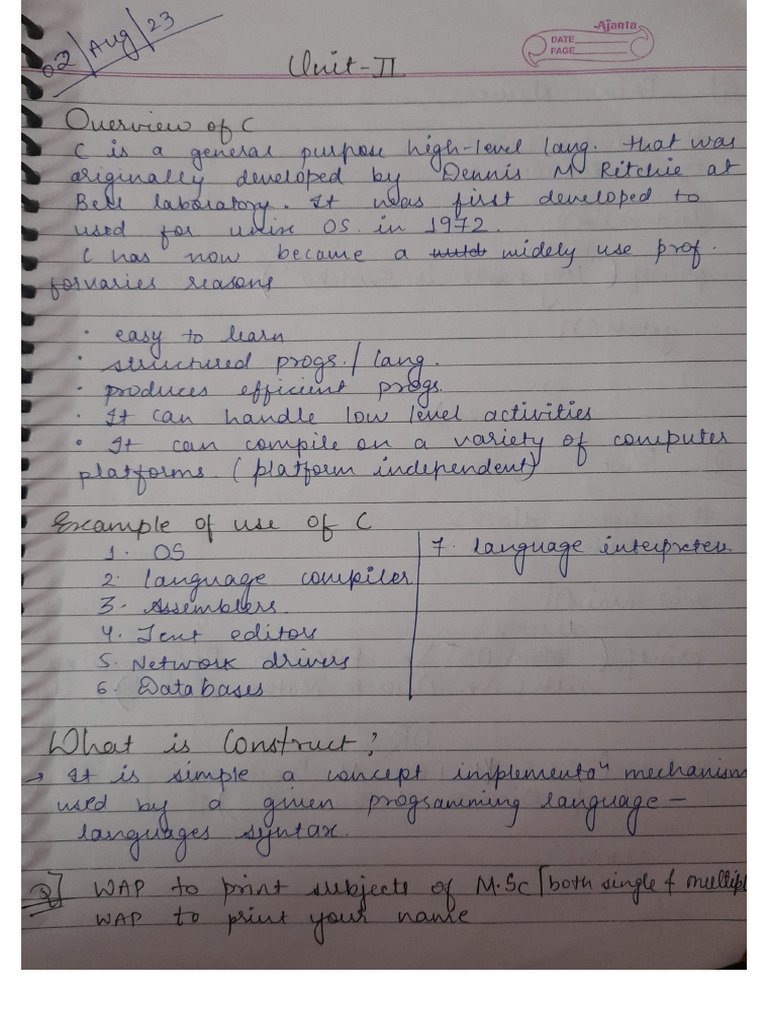 02/Aug/23
Ajanta
DATE
PAGE
Unit-II
Overview of C
C is a general purpose high-level lang. that was
originally developed by Dennis M Ritchie at
Bell laboratory. It was first developed to
used for unix OS in 1972.
C has now became a widely use prof.
forvaries reasons
· easy to learn
· structured progs./lang.
· produces efficient progs.
· It can handle low level activities
· It can compile on a variety of computer
platforms. (platform independent)
Example of use of C
1. OS
2. language compiler
3. Assemblers
4. Text editors
5. Network drivers
6. Databases
7. language interpreters
What is Construct?
→ It is simple a concept implementaⁿ mechanism
used by a given programming language –
languages syntax.
Q] WAP to print subjects of M.Sc [both single & multipl
WAP to print your name